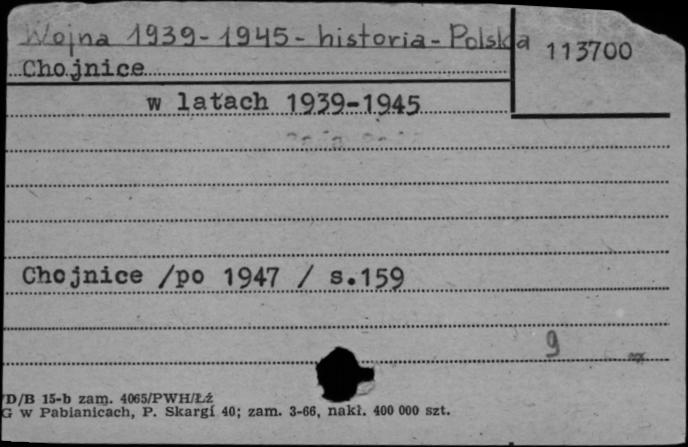 Wojna 1939-1945- historia-Polska
113700
Chojnice
w latach 1939-1945
Chojnice /po 1947 / s.159
9
D/B 15-b zam. 4065/PWH/Łź
G w Pabianicach, P. Skargi 40; zam. 3-66, nakł. 400 000 szt.